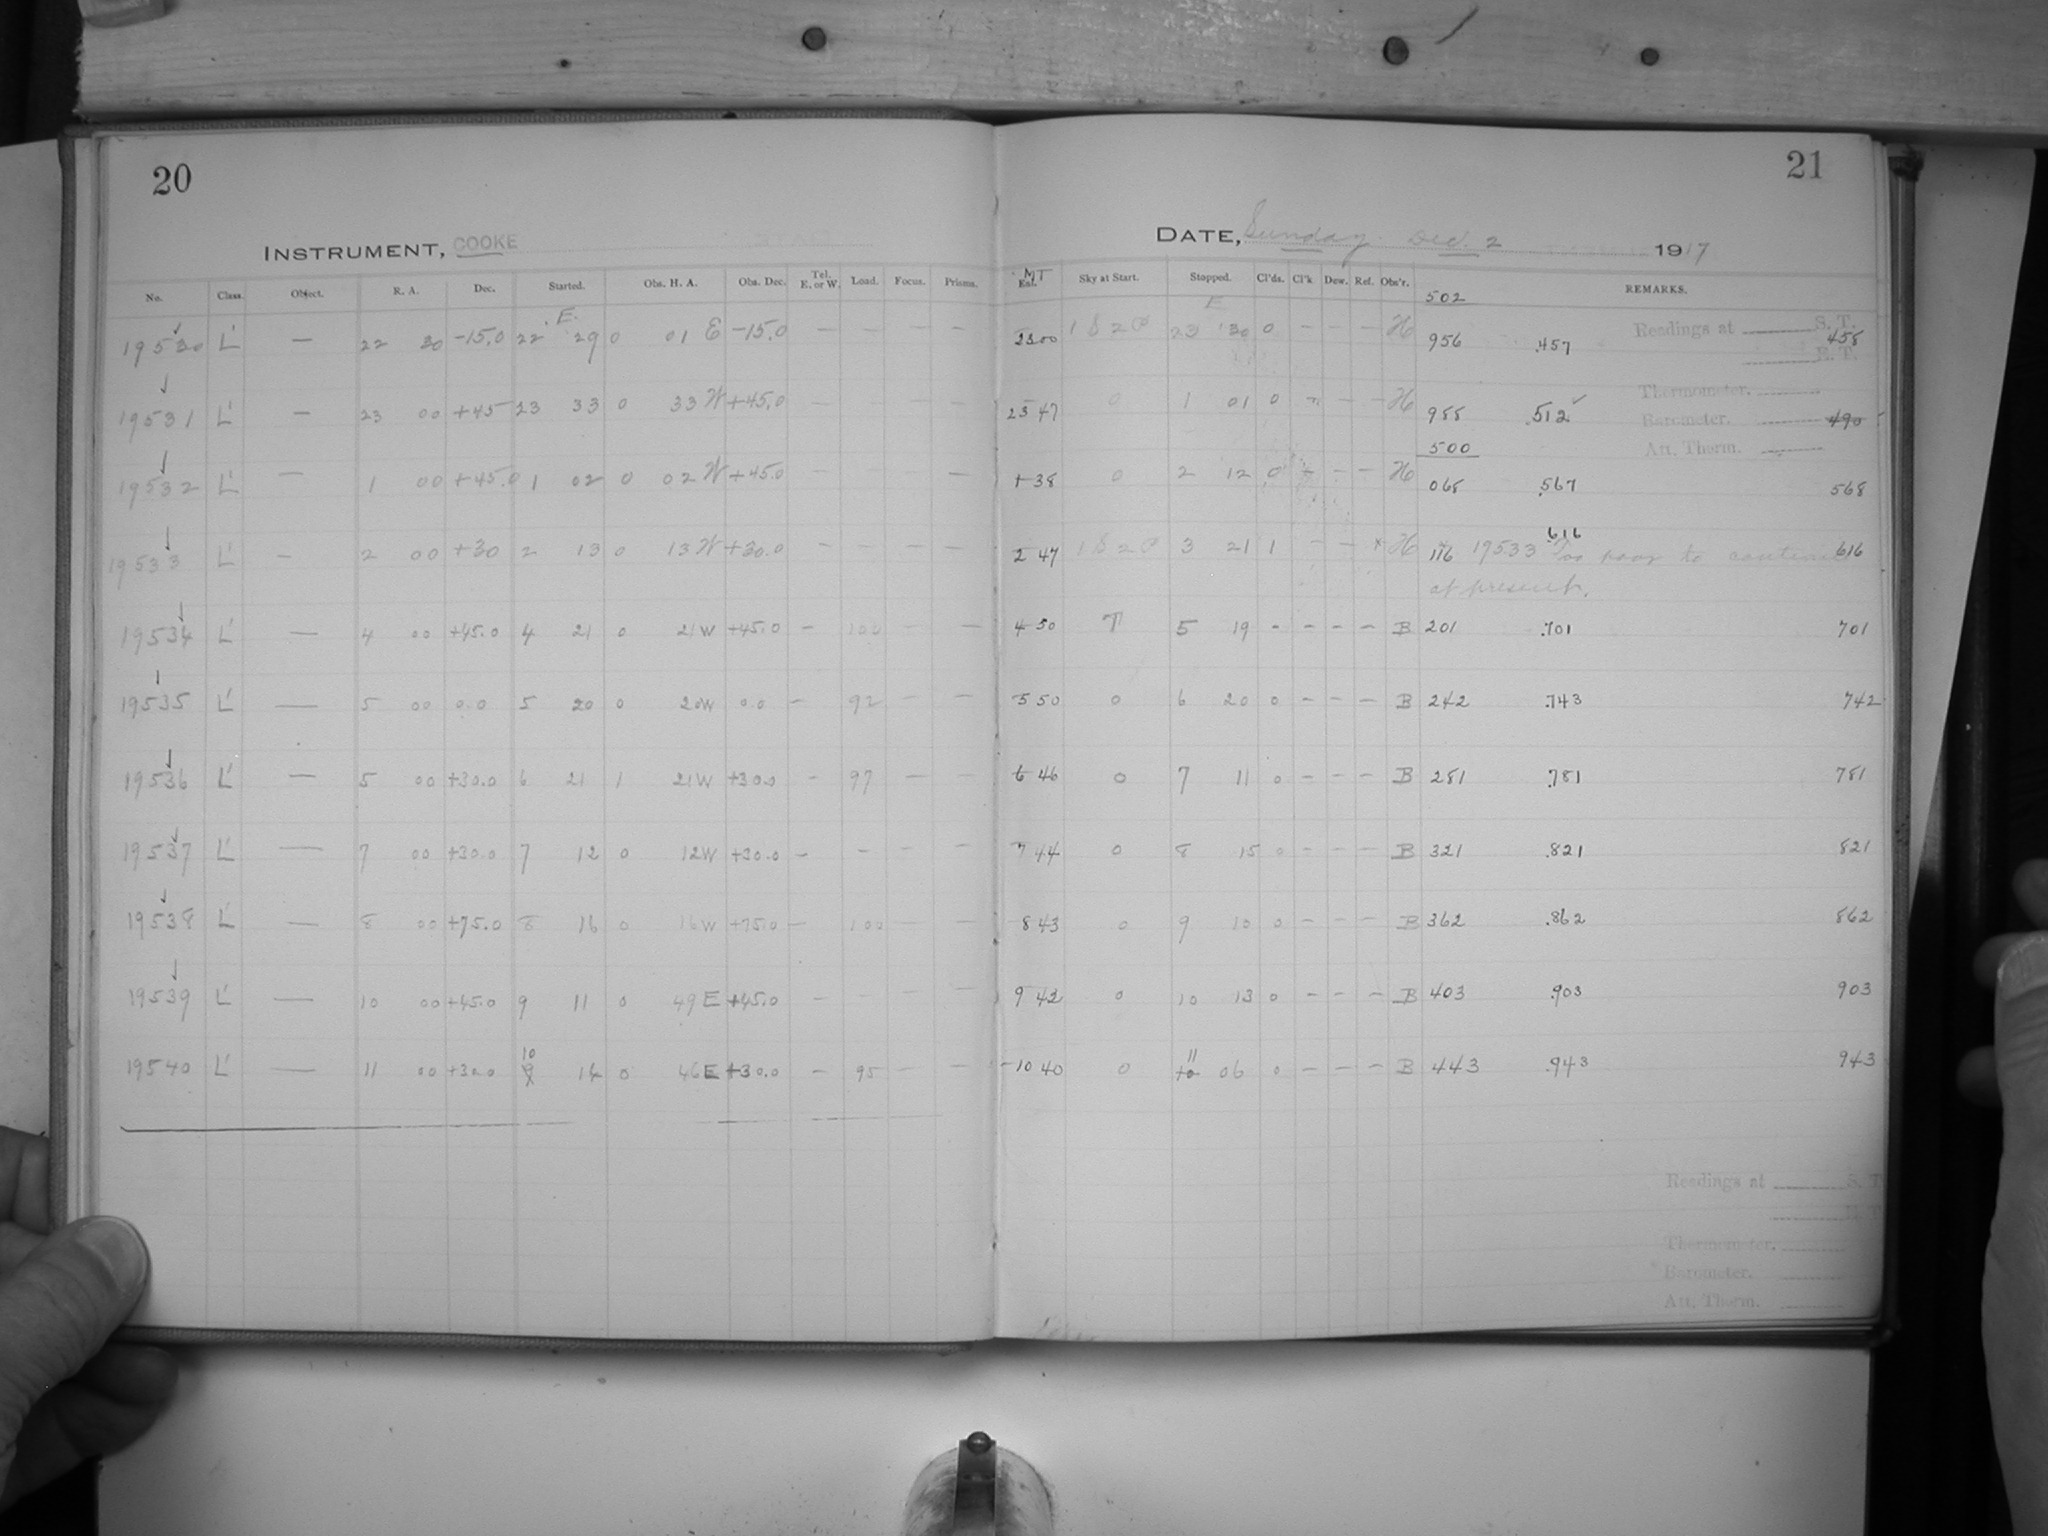 20
INSTRUMENT, COOKE
No. Class. Object. R. A. Dec. Started. Obs. H. A. Obs. Dec. Tel. E. or W. Load. Focus. Prisms.
E.
19530 L' — 22 30 -15.0 22 29 0 01 E -15.0 — — — —
19531 L' — 23 00 +45 23 33 0 33 W +45.0 — — — —
19532 L' — 1 00 +45.0 1 02 0 02 W +45.0 — — — —
19533 L' — 2 00 +30 2 13 0 13 W +30.0 — — — —
19534 L' — 4 00 +45.0 4 21 0 21 W +45.0 — 100 — —
19535 L' — 5 00 0.0 5 20 0 20 W 0.0 — 92 — —
19536 L' — 5 00 +30.0 6 21 1 21 W +30.0 — 97 — —
19537 L' — 7 00 +30.0 7 12 0 12 W +30.0 — — — —
19538 L' — 8 00 +75.0 8 16 0 16 W +75.0 — 100 — —
19539 L' — 10 00 +45.0 9 11 0 49 E +45.0 — — — —
10
19540 L' — 11 00 +30.0 9 14 0 46 E +30.0 — 95 — —
21
DATE, Sunday Dec. 2 1917
MT
Est. Sky at Start. Stopped. Cl'ds. Cl'k Dew. Ref. Obs'r. REMARKS.
E 502
Readings at S. T.
23 00 1 S 2 P 23 30 0 — — — H 956 .457 458
E. T.
Thermometer.
23 47 0 1 01 0 — — — H 988 .512 ✓ 490
Barometer.
500 Att. Therm.
1 38 0 2 12 0 — — — H 068 .567 568
.616
2 47 1 S 2 P 3 21 1 — — × H 116 × 19533 Too poor to continue 616
at present.
4 50 T 5 19 - — — — B 201 .701 701
5 50 0 6 20 0 — — — B 242 .743 742
6 46 0 7 11 0 — — — B 281 .781 781
7 44 0 8 15 0 — — — B 321 .821 821
8 43 0 9 10 0 — — — B 362 .862 862
9 42 0 10 13 0 — — — B 403 .903 903
11
10 40 0 10 06 0 — — — B 443 .943 943
Readings at S. T.
Thermometer.
Barometer.
Att. Therm.